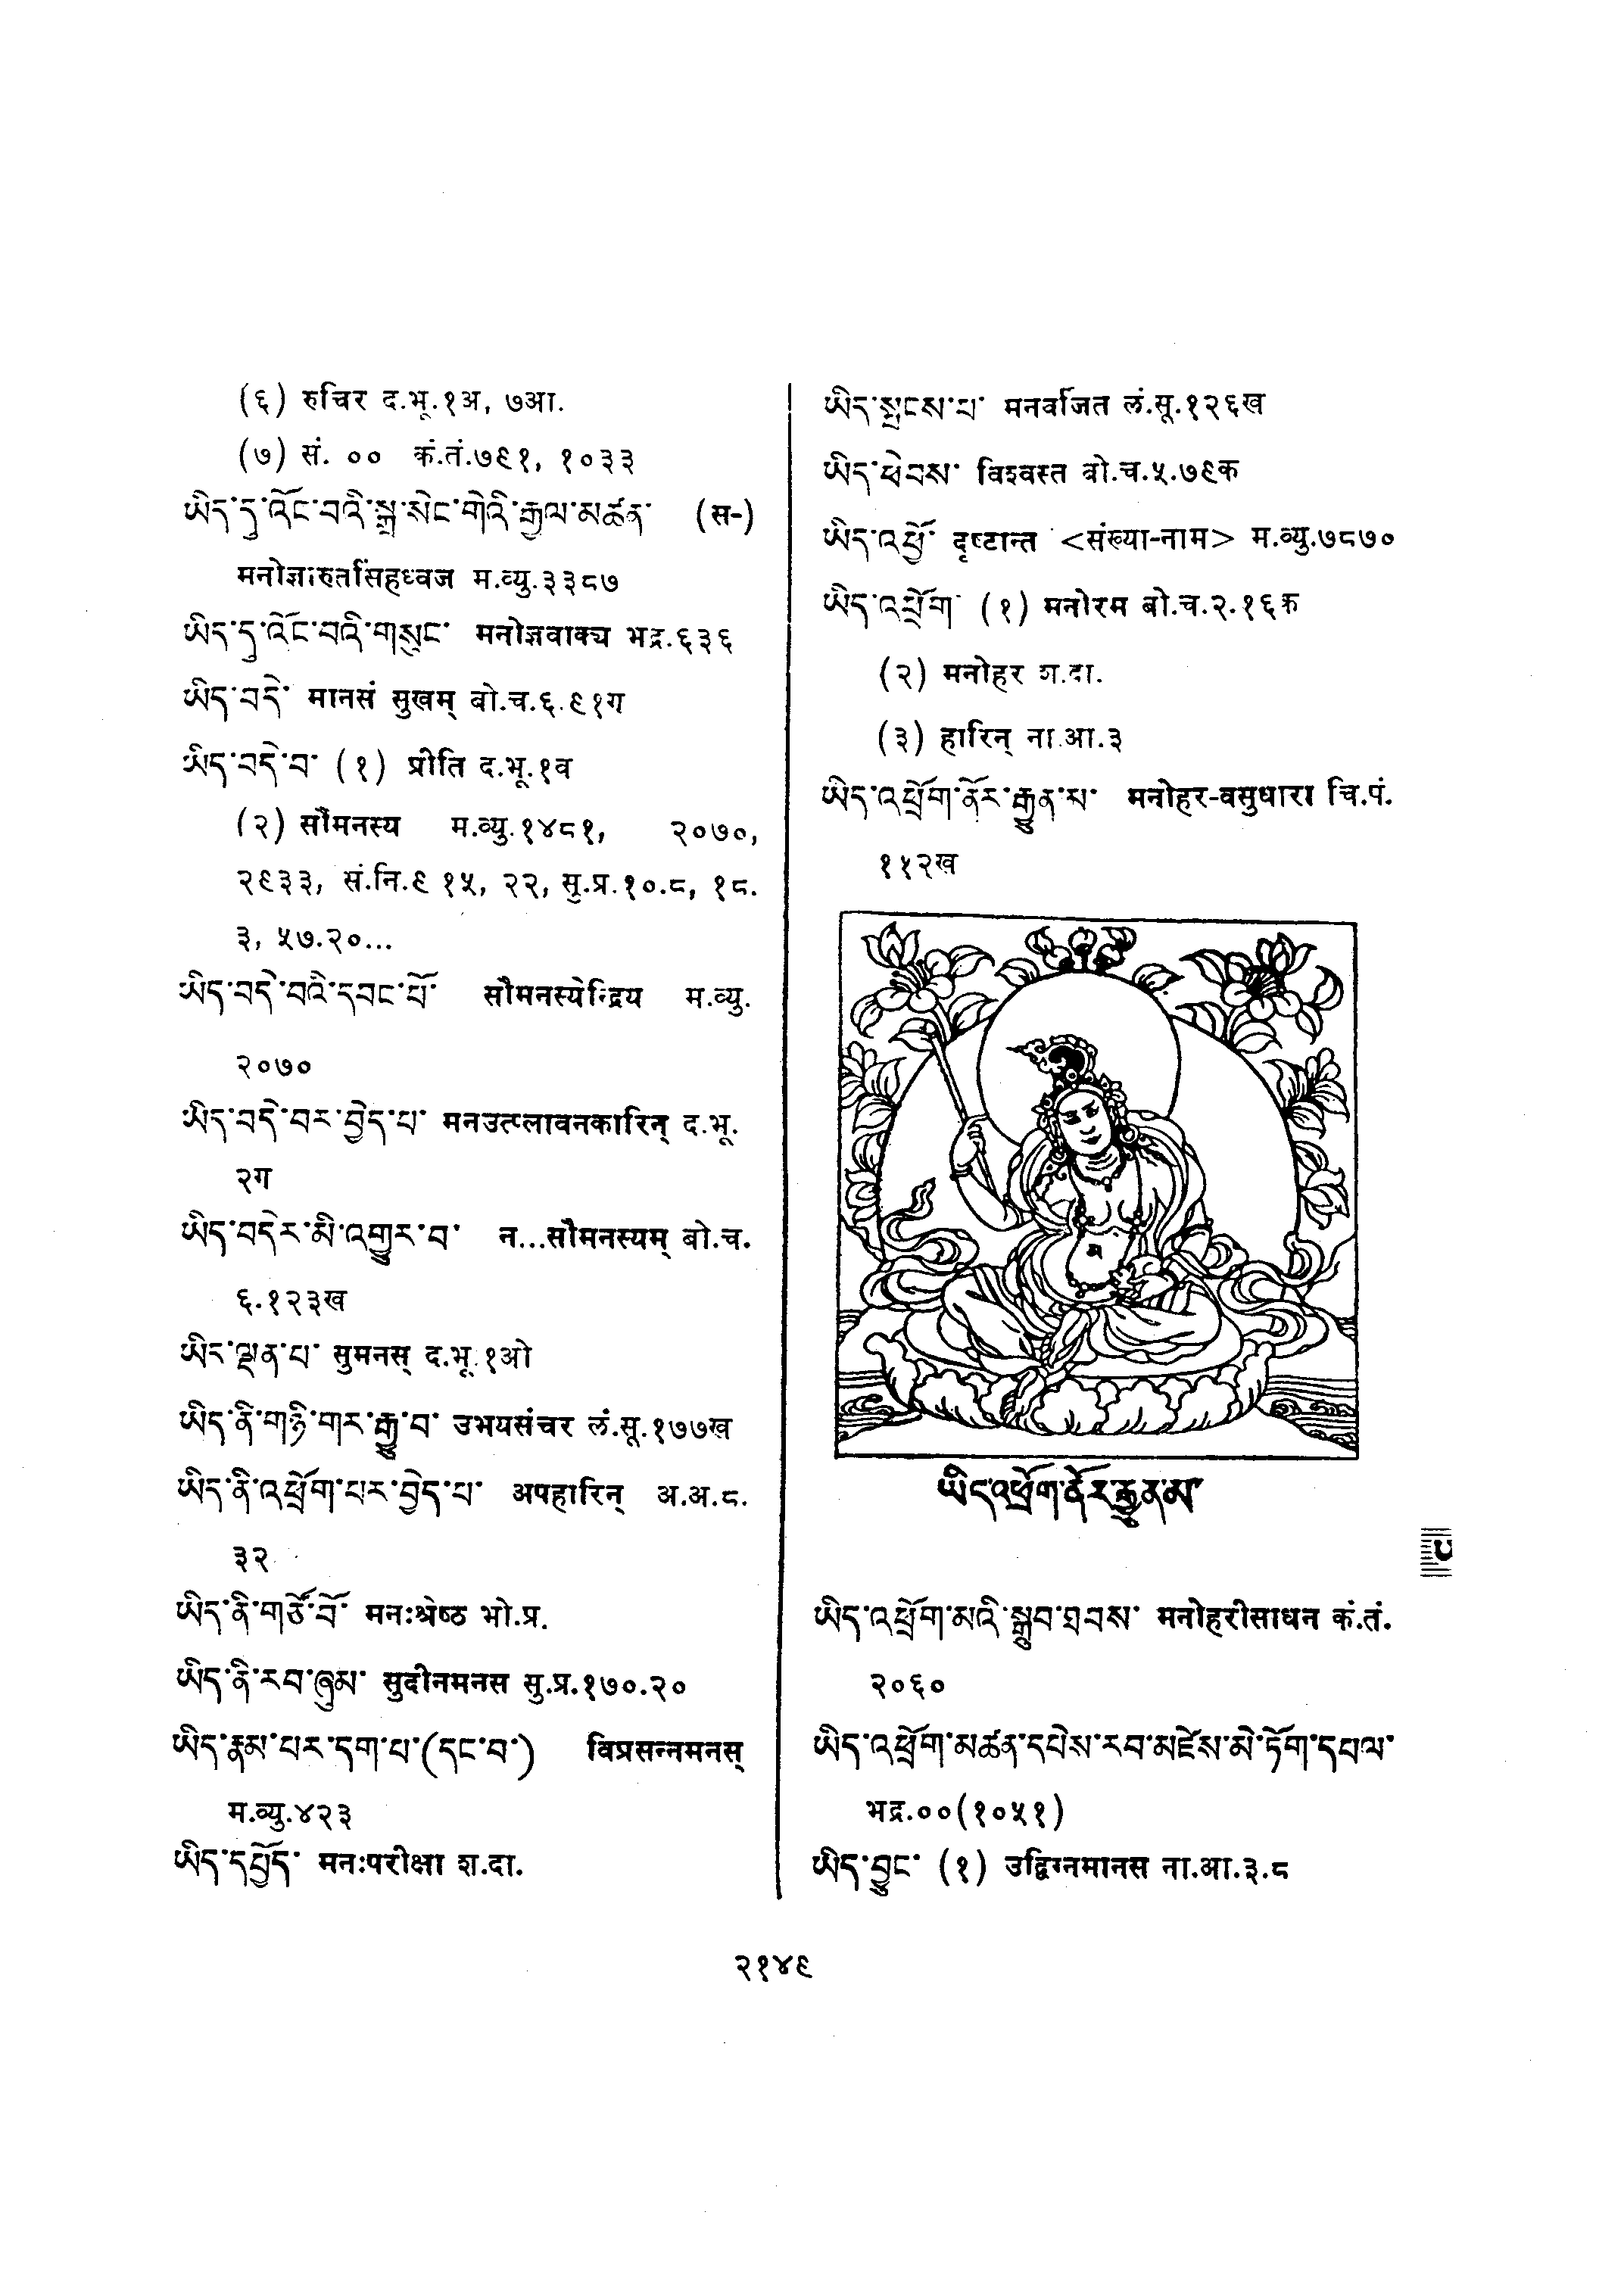 (६) रुचिर द.भू.१अ, ७आ.
(७) सं. ०० कं.तं.७९१, १०३३
ཡིད་དུ་འོང་བའི་སྒྲ་སེང་གེའི་རྒྱལ་མཚན་ (स-)
मनोज्ञारुतसिंहध्वज म.व्यु.३३८७
ཡིད་དུ་འོང་བའི་གསུང་ मनोज्ञवाक्य भद्र.६३६
ཡིད་བདེ་ मानसं सुखम् बो.च.६.९१ग
ཡིད་བདེ་བ་ (१) प्रीति द.भू.१व
(२) सौमनस्य म.व्यु.१४८१, २०७०,
२९३३, सं.नि.९ १५, २२, सु.प्र.१०.८, १८.
३, ५७.२०...
ཡིད་བདེ་བའི་དབང་པོ་ सौमनस्येन्द्रिय म.व्यु.
२०७०
ཡིད་བདེ་བར་བྱེད་པ་ मनउत्प्लावनकारिन् द.भू.
२ग
ཡིད་བདེར་མི་འགྱུར་བ་ न...सौमनस्यम् बो.च.
६.१२३ख
ཡིད་ལྡན་པ་ सुमनस् द.भू.१ओ
ཡིད་ནི་གཉི་གར་རྒྱུ་བ་ उभयसंचर लं.सू.१७७ख
ཡིད་ནི་འཕྲོག་པར་བྱེད་པ་ अपहारिन् अ.अ.८.
३२
ཡིད་ནི་གཙོ་བོ་ मनःश्रेष्ठ भो.प्र.
ཡིད་ནི་རབ་ཞུམ་ सुदीनमनस सु.प्र.१७०.२०
ཡིད་རྣམ་པར་དག་པ་(དང་བ་) विप्रसन्नमनस्
म.व्यु.४२३
ཡིད་དཔྱོད་ मनःपरीक्षा श.दा.
ཡིད་སྤངས་པ་ मनवर्जित लं.सू.१२६ख
ཡིད་ཕེབས་ विश्वस्त बो.च.५.७९क
ཡིད་འཕྱོ་ दृष्टान्त <संख्या-नाम> म.व्यु.७८७०
ཡིད་འཕྲོག་ (१) मनोरम बो.च.२.१६क
(२) मनोहर श.दा.
(३) हारिन् ना.आ.३
ཡིད་འཕྲོག་ནོར་རྒྱུན་མ་ मनोहर-वसुधारा चि.पं.
१५२ख
ཡིད་འཕྲོག་ནོར་རྒྱུན་མ་
ཡིད་འཕྲོག་མའི་སྒྲུབ་ཐབས་ मनोहरीसाधन कं.तं.
२०६०
ཡིད་འཕྲོག་མཚན་དཔེས་རབ་མཛེས་མེ་ཏོག་དཔལ་
भद्र.००(१०५१)
ཡིད་བྱུང་ (१) उद्विग्नमानस ना.आ.३.८
२१४९